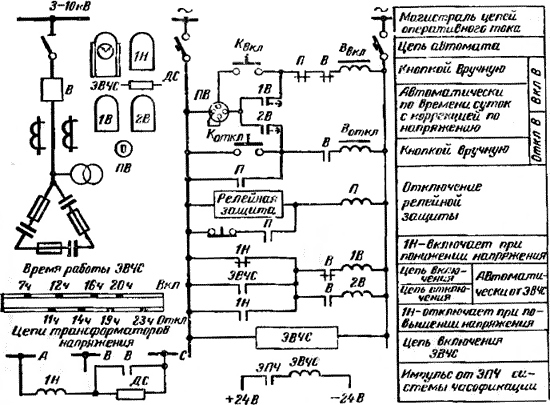 3-10кВ
В
1Н
ЭВЧС
ДС
1В
2В
ПВ
~
~
Квкл
П
В
Ввкл
ПВ
1В
2В
Коткл
В
Воткл
П
Релейная
защита
П
П
1Н
ЭВЧС
1Н
В
1В
В
2В
ЭВЧС
ЭПЧ
ЭВЧС
+24В
-24В
Время работы ЭВЧС
7ч 12ч 16ч 20ч Вкл
11ч 14ч 19ч 23ч Откл
Цепи трансформаторов
напряжения
А
В
В
С
1Н
ДС
Магистраль цепей
оперативного тока
Цепь автомата
Кнопкой вручную
Вкл В
Автоматически
по времени суток
с коррекцией по
напряжению
Откл В
Кнопкой вручную
Отключение
релейной
защиты
1Н-включает при
понижении напряжения
Цепь вклю-
чения
Цепь отклю-
чения
Автомати-
чески от ЭВЧС
1Н-отключает при по-
вышении напряжения
Цепь включения
ЭВЧС
Импульс от ЭПЧ си-
стемы часофикации